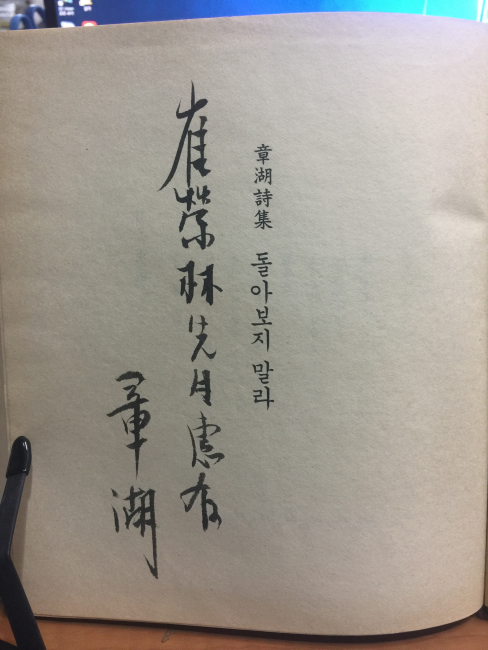 章湖詩集 돌아보지 말라
崔榮林先生惠存
章湖